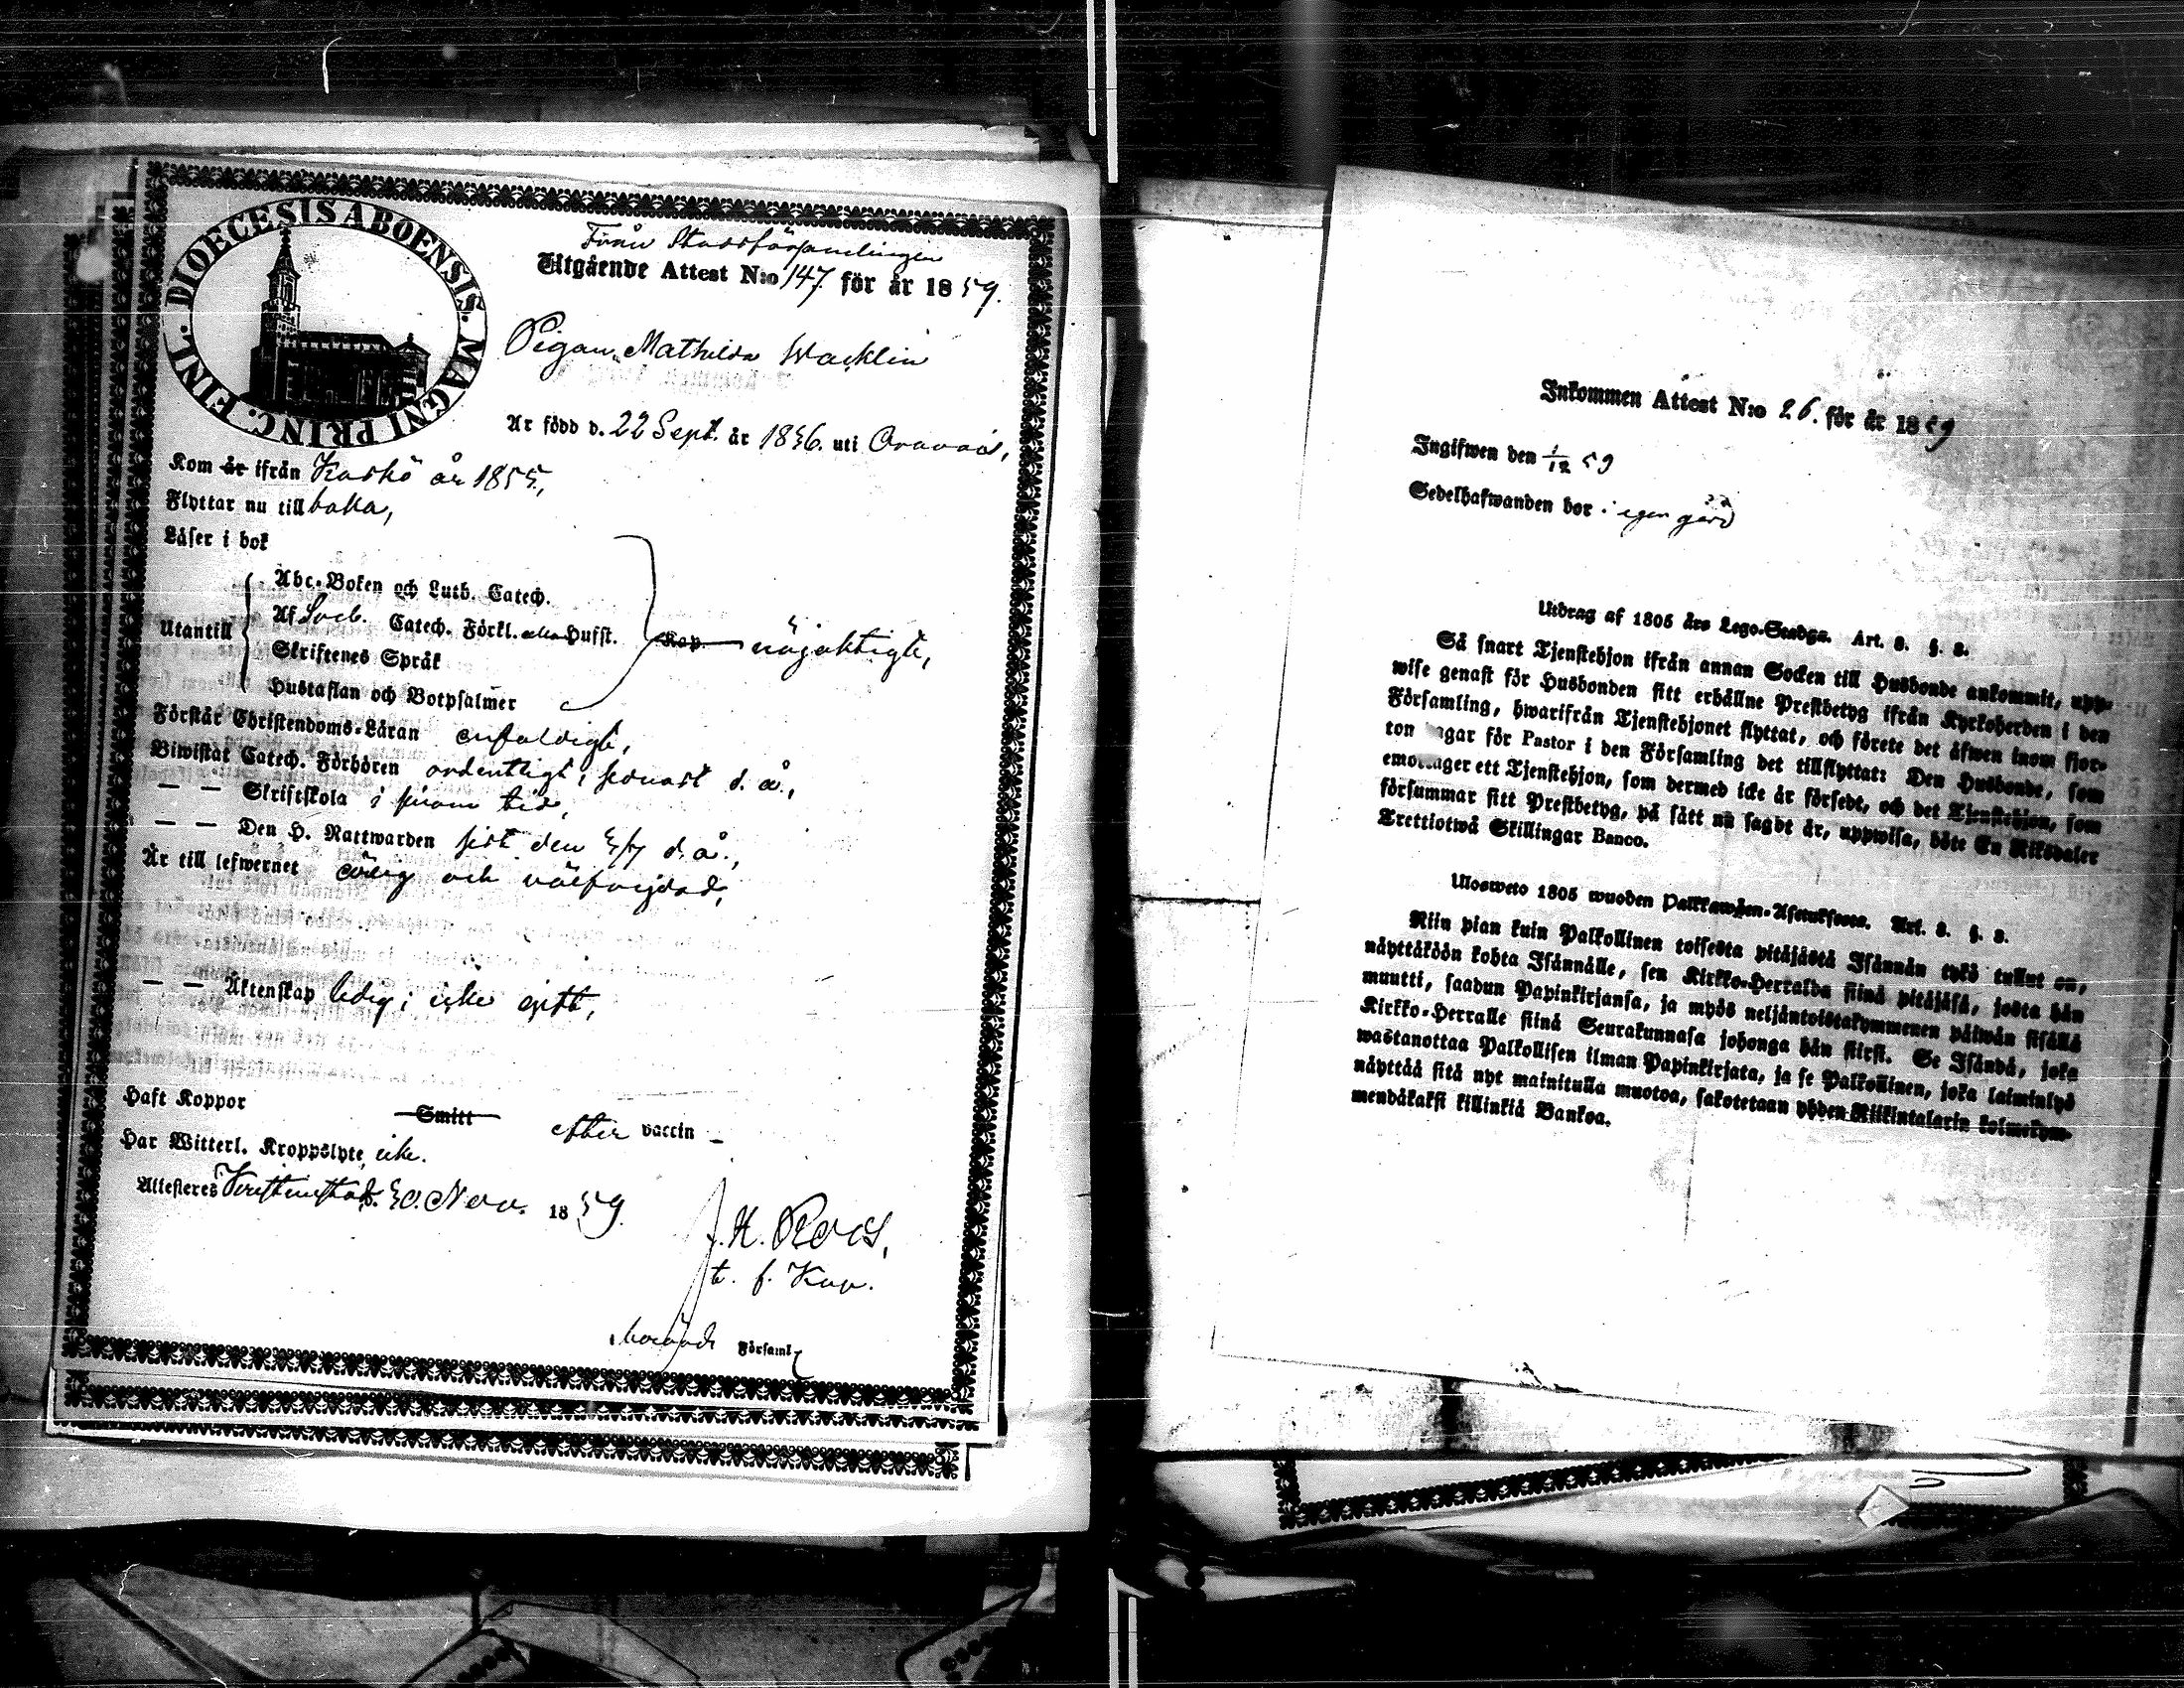 DIOECESIS ABOENSIS. MAGNI PRINC. FINL.
Från Stadsförsamlingen
Utgående Attest N:o 147 för år 1859.
Pigan Mathilda Wacklin
Är född d. 22 Sept. år 1836. uti Oravais,
Kom år ifrån Kaskö år 1855,
Flyttar nu till baka,
Läser i bok
Utantill
Abc-Boken och Luth. Catech.
Af Sveb. Catech. Förkl. Husst.
Skriftenes Språk
Hustaflan och Botpsalmer
Kap nöjaktigt,
Förstår Christendoms-Läran enfaldigt,
Biwistat Catech. Förhören ordentligt, senast d. å.,
— — Skriftskola i sinom tid,
— — Den H. Nattwarden sist den d. å.,
Är till lefwernet ärlig och välfrejdad,
— — Äktenskap ledig; icke gift,
Haft Koppor Smitt efter vaccin
Har Witterl. Kroppslyte icke.
Attesteras Kristinestad d. 30. Nov. 1859.
J. H. Roos,
t. f. Kap.
Församl
Inkommen Attest N:o 26. för år 1859
Ingifwen den 1/12 59
Sedelhafwanden bor i egen gård
Utdrag af 1805 års Lego-Stadga. Art. 8. §. 8.
Så snart Tjenstehjon ifrån annan Socken till Husbonde ankommit, upp-
wise genast för Husbonden sitt erhållne Prestbetyg ifrån Kyrkoherden i den
Församling, hwarifrån Tjenstehjonet flyttat, och förete det äfwen inom fjor-
ton dagar för Pastor i den Församling det tillflyttat: Den Husbonde, som
emottager ett Tjenstehjon, som dermed icke är försedt, och det Tjenstehjon, som
försummar sitt Prestbetyg, på sätt nu sagdt är, uppwisa, böte En Riksdaler
Trettiotwå Skillingar Banco.
Ulosweto 1805 wuoden Palkkawäen-Asetuksesta. Art. 8. §. 8.
Niin pian kuin Palkollinen toisesta pitäjästä Isännän tykö tullut on,
näyttäköön kohta Isännälle, sen Kirkko-Herralda siinä pitäjäsä, josta hän
muutti, saadun Papinkirjansa, ja myös neljäntoistakymmenen päiwän sisällä
Kirkko-Herralle siinä Seurakunnasa johonga hän siirsi. Se Isändä, joka
wastanottaa Palkollisen ilman Papinkirjata, ja se Palkollinen, joka laiminlyö
näyttää sitä nyt mainitulla muotoa, sakotetaan yhden Riikintalarin kolmekym-
mendäkaksi killinkiä Bankoa.